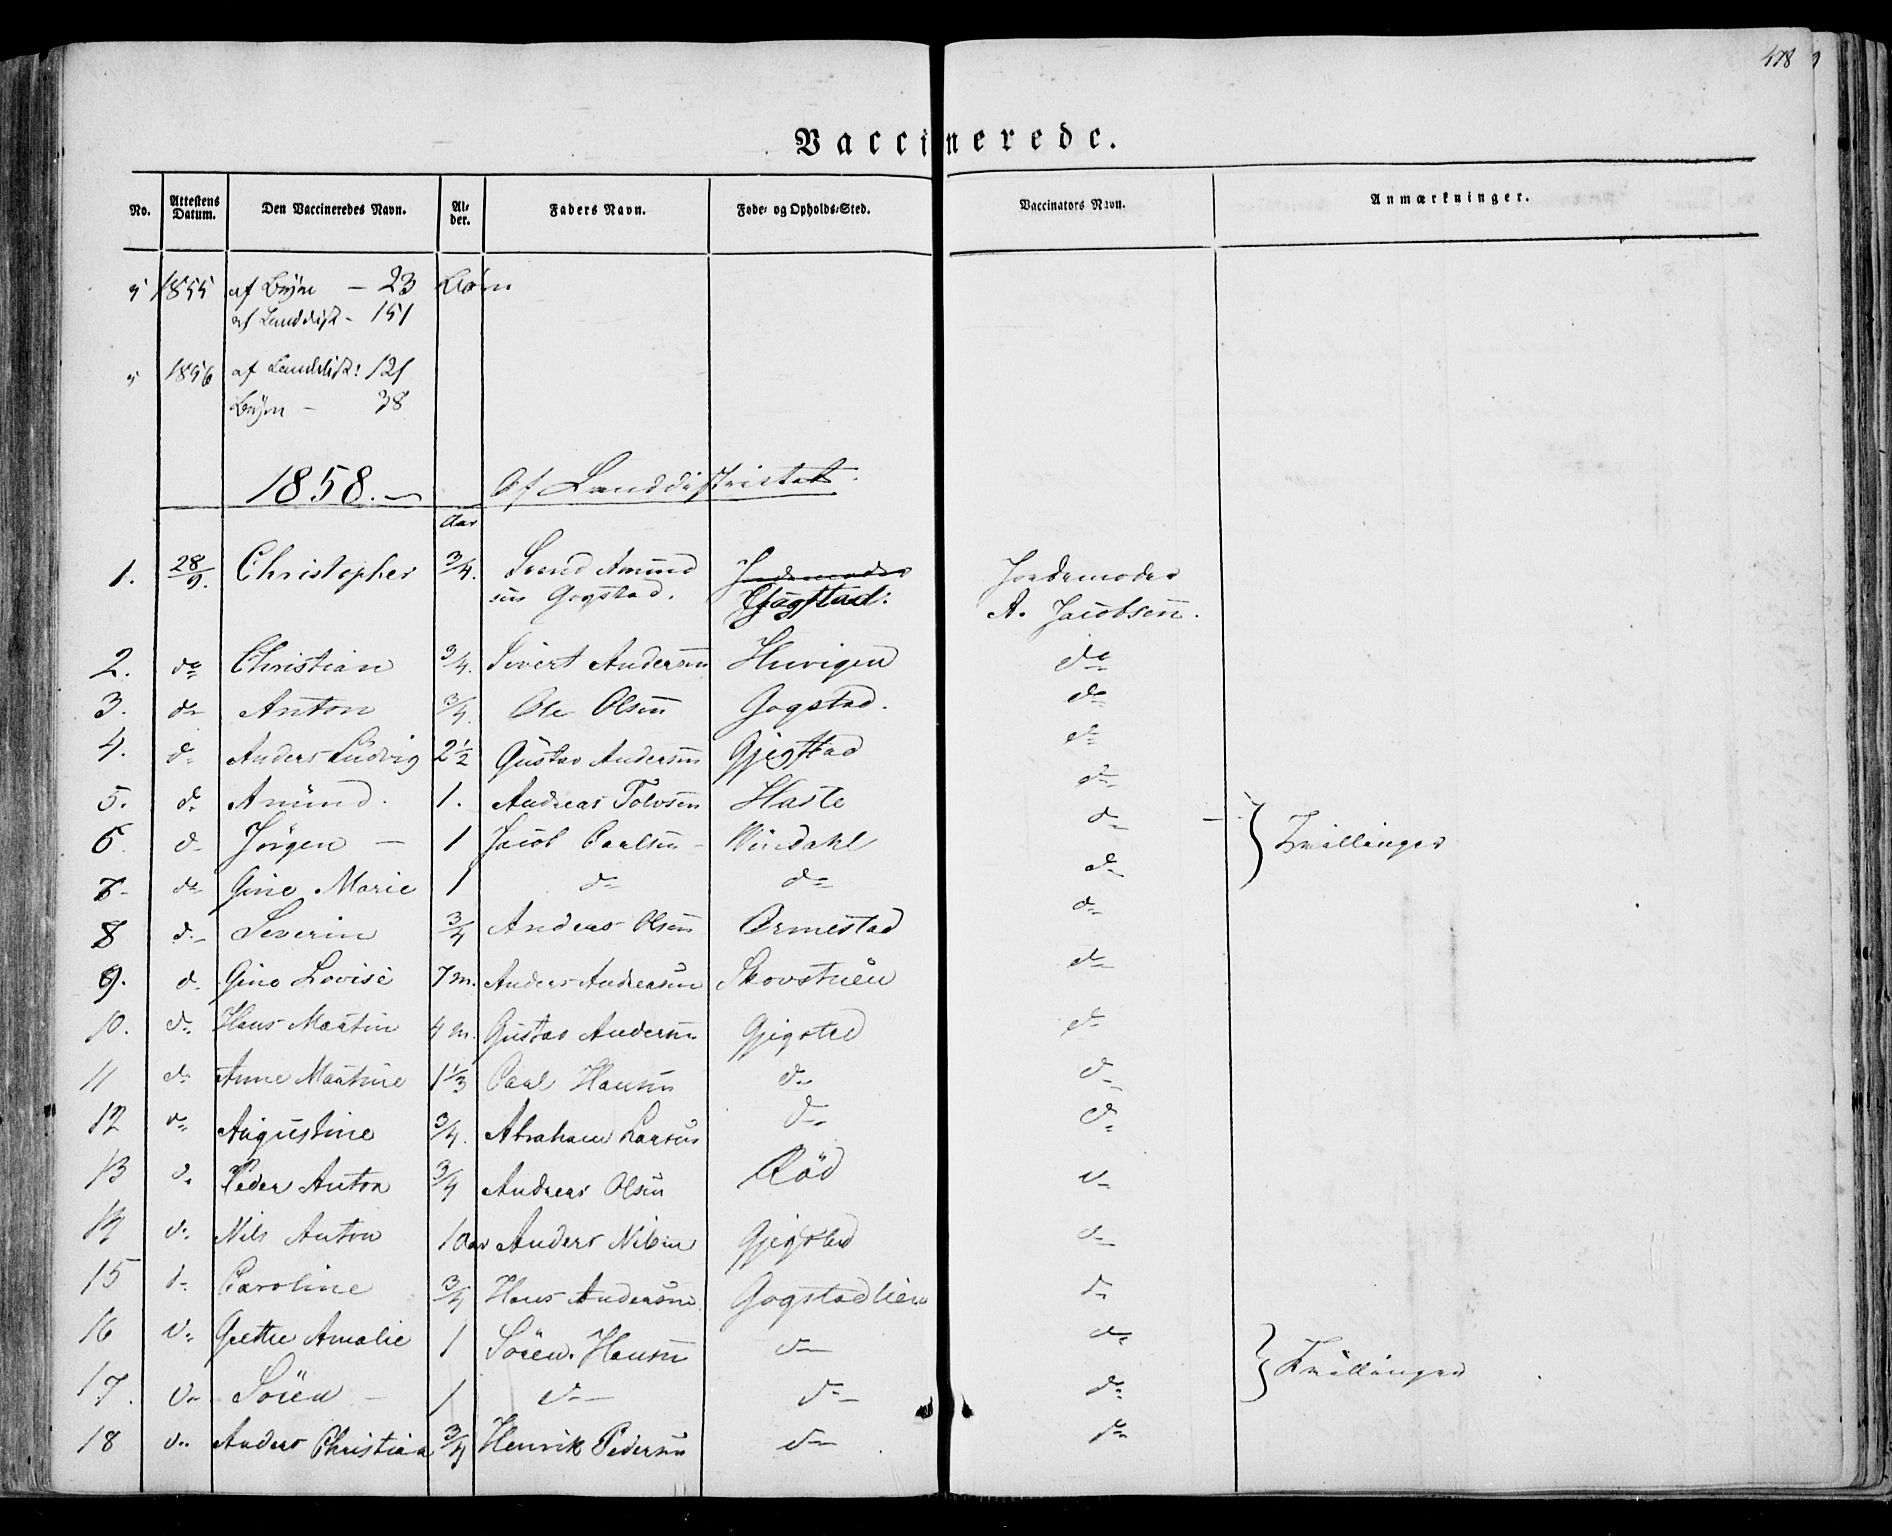 478
Vaccinerede.
No. Attestens Datum. Den Vaccineredes Navn. Al-der. Faders Navn. Føde- og Opholds-Sted. Vaccinators Navn. Anmærkninger.
1855 af Byen — 23 Børn
af Landdist. - 151
1856 af Landdist: 121
Byen — 38
1858. Af Landdistrictet.
Aar
1. 28/9. Christopher 3/4. Svend Amund Jordemoder Jordemoder
sen Gogstad. Gogstad. A. Jacobsen.
2. do Christian 3/4. Sivert Andersen Huvigen do
3. do Anton 3/4. Ole Olsen Gogstad. do
4. do Anders Ludvig 2 1/2 Gustav Andersen Gjegstad do
5. do Amund. 1. Andreas Tolvsen Hasle do
6. do Jørgen — 1 Jacob Carlsen - Virdahl do } Tvillinger
7. do Gine Marie 1 do do do
8 do Severin 3/4 Anders Olsen Ormestad do
9. do Gine Lovise 7 m. Anders Andreasen Skovstuen do
10. do Hans Martin 4 m. Gustav Andersen Gjigsted do
11 do Anne Martine 1 1/3 Carl Hansen do do
12 do Augustine 3/4. Abraham Larsen do do
13 do Peder Anton 3/4 Andreas Olsen Röd do
14 do Nils Anton 10 Anders Nilsen Gjigsted do
15 do Caroline 3/4 Hans Andersen Gogstadlien do
16 do Grethe Amalie 1 Sören Hansen do do } Tvillinger
17. do Sören - 1 do do do
18 do Anders Christian 3/4 Henrik Pedersen do do